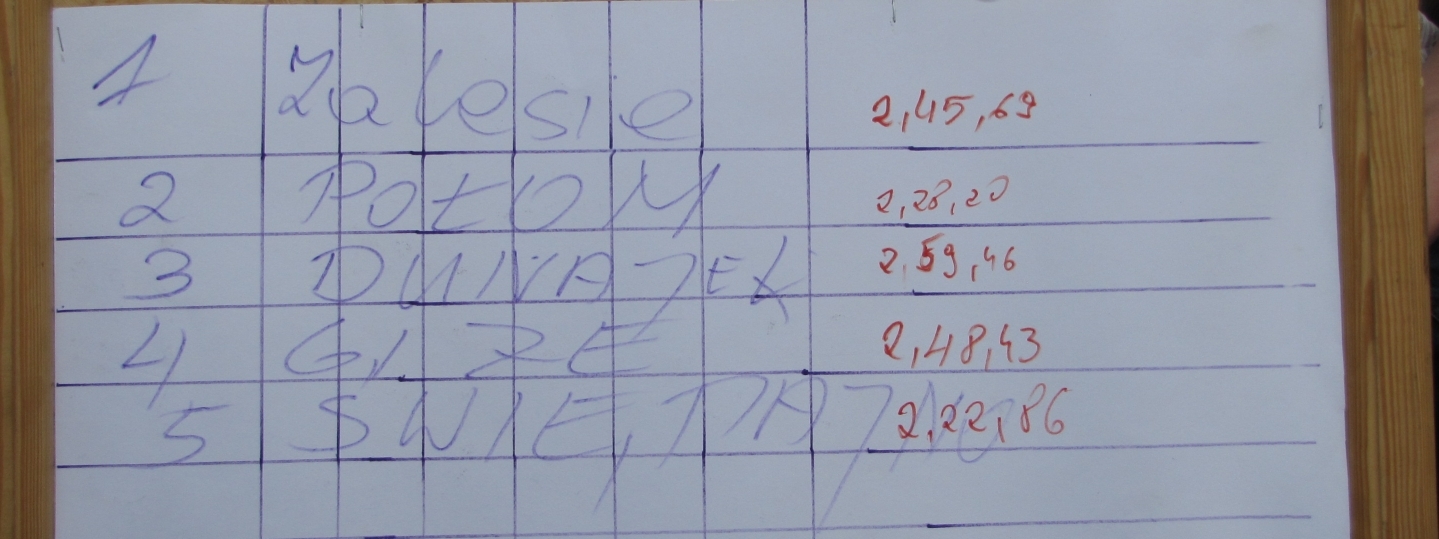 1 Zalesie 2,45,69
2 POŁOM 2,28,20
3 DUNAJEK 2,59,46
4 GIZE 2,48,43
5 ŚWIĘTAJNO 2,22,86